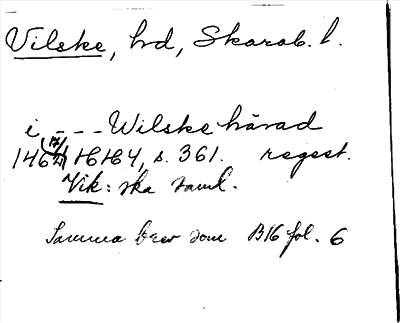 Vilske, hd, Skarab. l.
i - - - Wilske härad
146 17/1 HH4, s. 361. regest.
Vik: ska saml.
Samma brev som B16 fol. 6